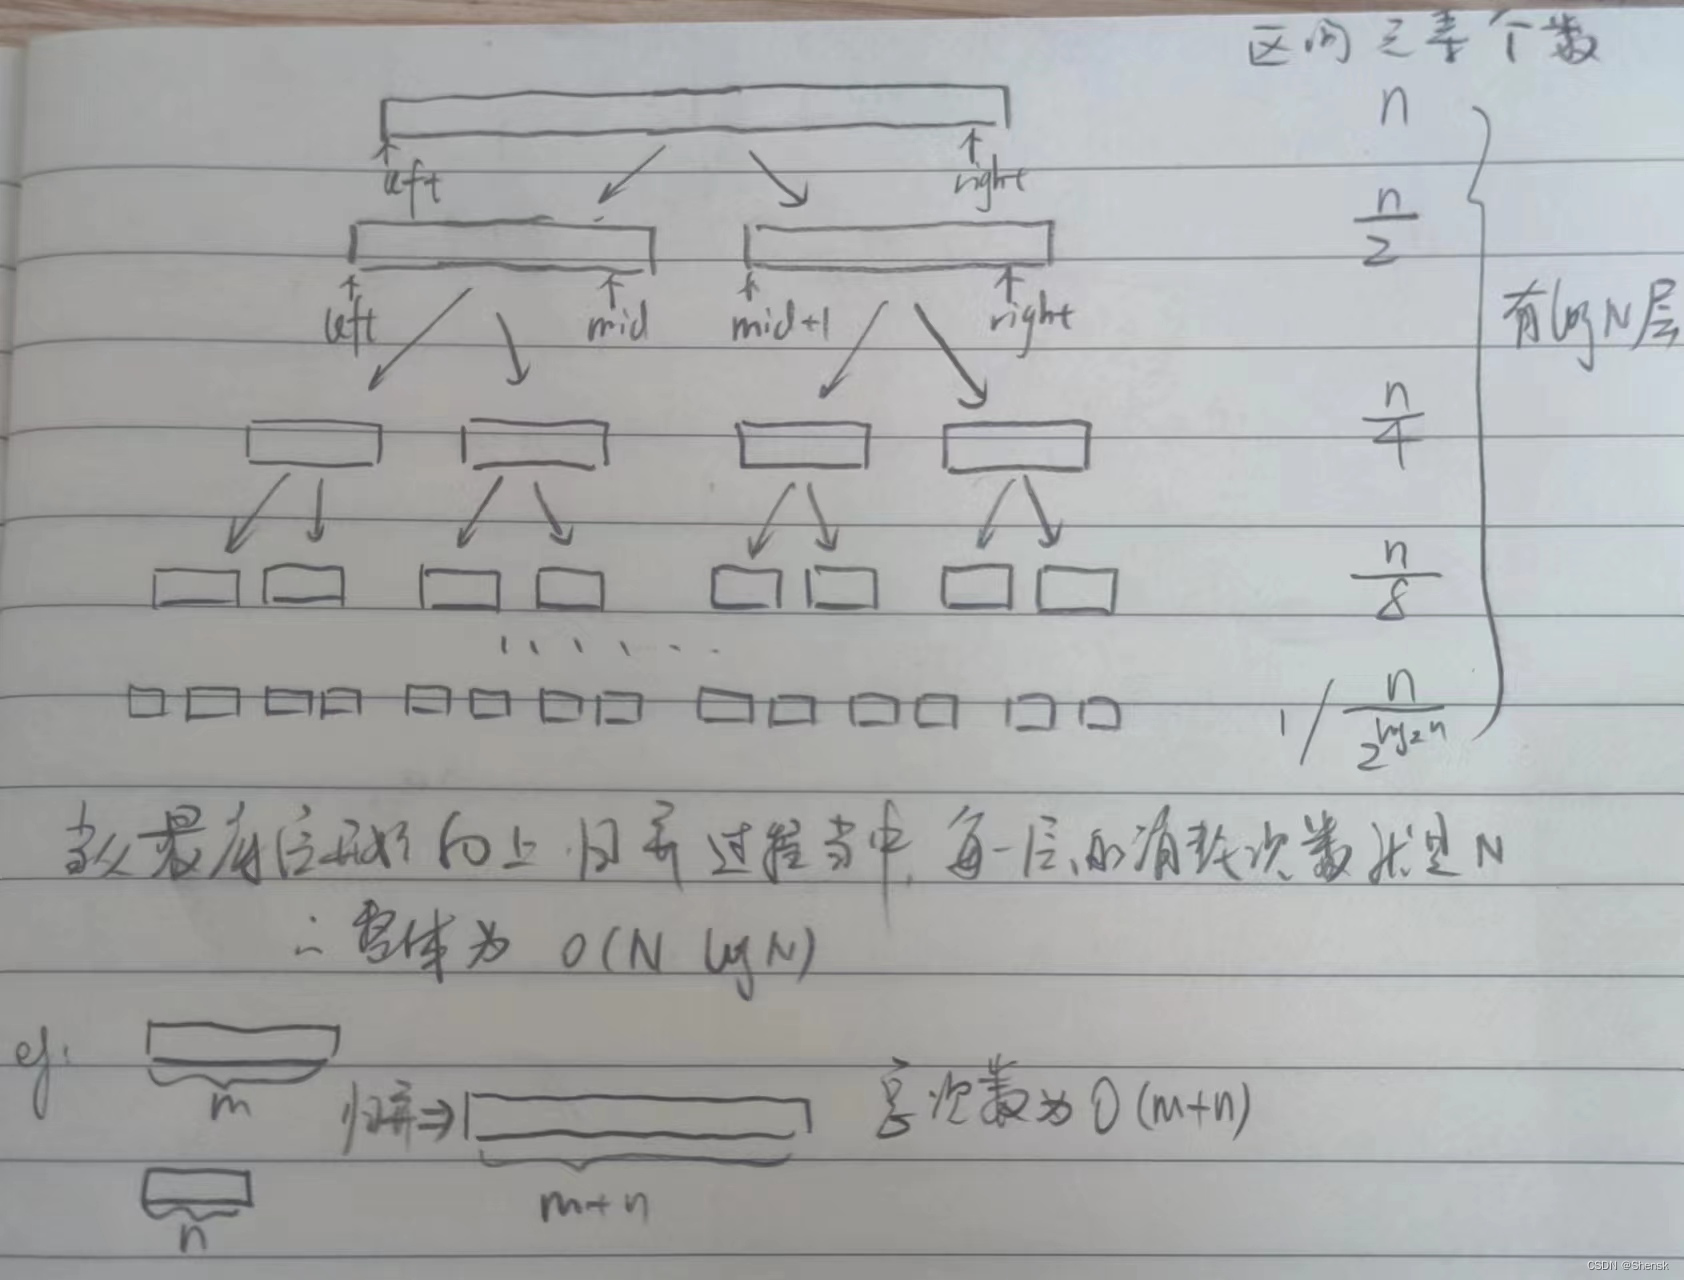 区间元素个数
n
left right
n/2
left mid mid+1 right
有logN层
n/4
n/8
1 / n/2^log₂n
从最有 向上归并过程当中,每一层的消耗次数就是N
∴整体为 O(N logN)
eg:
m 归并⇒ 总次数为O(m+n)
m+n
n
CSDN @Shensk